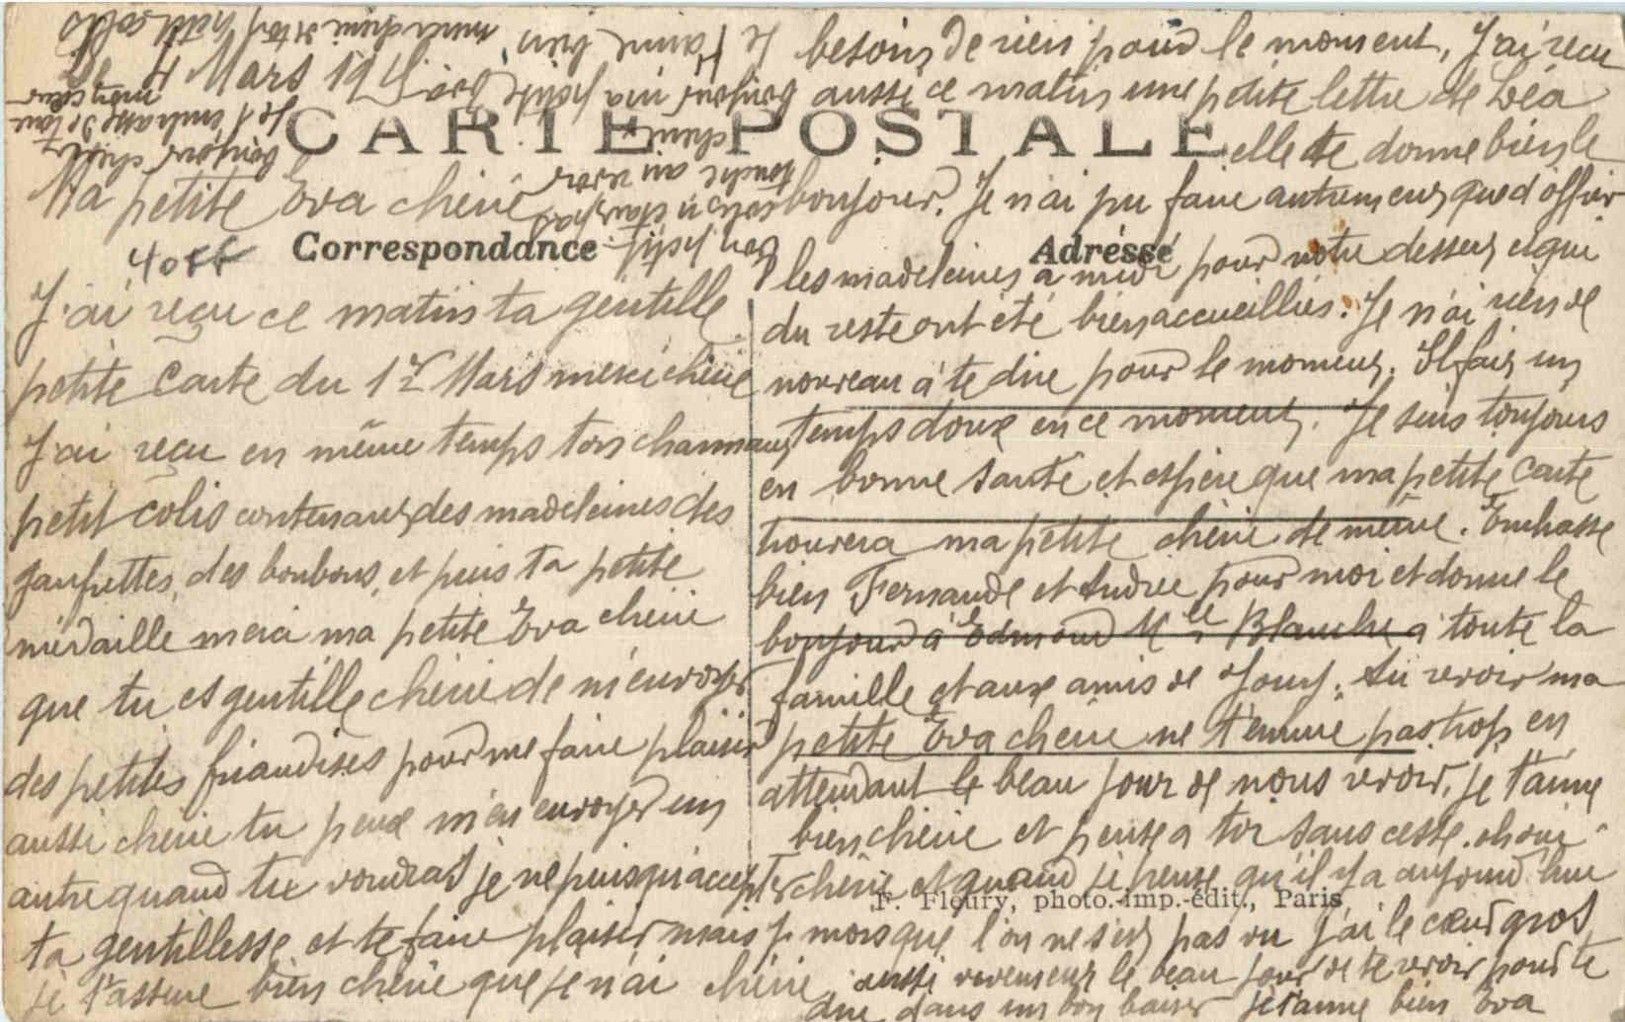 4 Mars 191
CARTE POSTALE
Ma petite Eva chérie
Correspondance
J'ai reçu ce matin ta gentille
petite carte du 1er Mars merci chérie
J'ai reçu en même temps ton charmant
petit colis contenant des madeleines des
gaufrettes, des bonbons, et puis ta petite
médaille merci ma petite Eva chérie
que tu es gentille chérie de m'envoyer
des petites friandises pour me faire plaisir
aussi chérie tu peux m'en envoyer un
autre quand tu voudras je ne puis qu'accepter
ta gentillesse et te faire plaisir mais
je t'assure bien chérie que je n'ai
besoin de rien pour le moment, J'ai reçu
aussi ce matin une petite lettre de Léa
elle te donne bien le
bonjour. Je n'ai pu faire autrement que d'offrir
Adresse
les madeleines à midi pour notre dessert et qui
du reste ont été bien accueillies. Je n'ai rien de
nouveau à te dire pour le moment. Il fait un
temps doux en ce moment. Je suis toujours
en bonne santé et espère que ma petite carte
trouvera ma petite chérie de même. Embrasse
bien Fernande et Andrée pour moi et donne le
bonjour à Edmond Mlle Blanche à toute la
famille et aux amis de Jouy. Au revoir ma
petite Eva chérie ne t'ennuie pas trop en
attendant le beau jour de nous revoir, je t'aime
bien chérie et pense à toi sans cesse. oh oui
chérie et quand je pense qu'il y a aujourd'hui
F. Fleury, photo.-imp.-édit., Paris
mois que l'on ne s'est pas vu j'ai le cœur gros
chérie aussi vivement le beau jour de te revoir pour te
dire dans un bon baiser je t'aime bien Eva
ton petit
colis n'étant pas
touché au revoir
chérie
bonjour ma petite
je t'aime bien
merci chérie de ton petit colis
bonjour chérie
je t'embrasse de tout
mon cœur